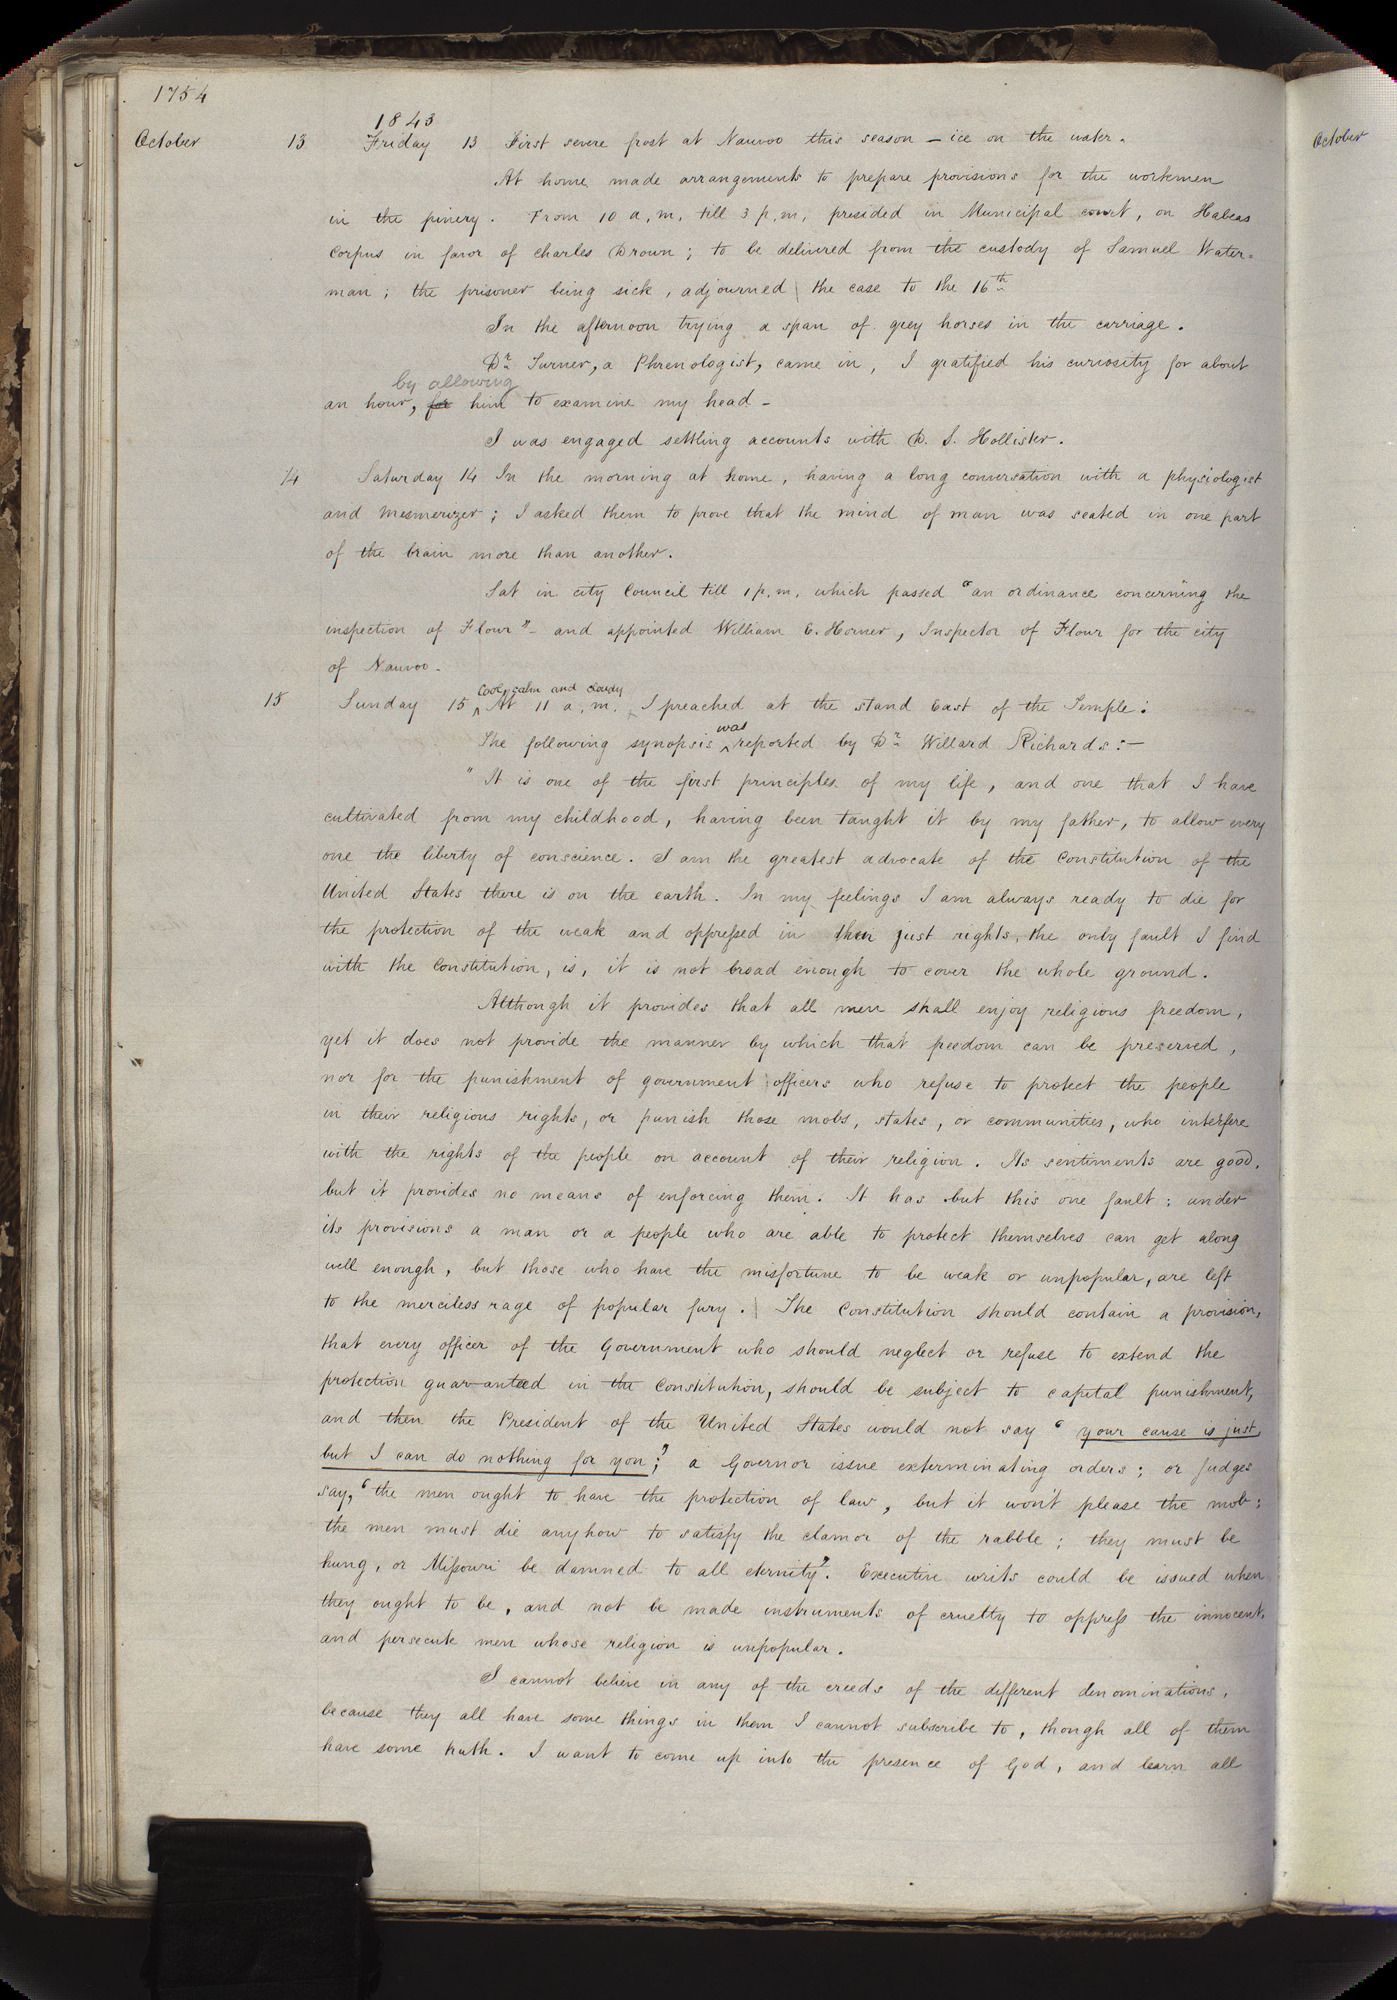 1754
1843
October 13 Friday 13 First severe frost at Nauvoo this season – ice on the water.
At home made arrangements to prepare provisions for the workmen
in the pinery. From 10 a,m, till 3 p,m, presided in Municipal court, on Habeas
Corpus in favor of charles Drown; to be delivered from the custody of Samuel Water-
man; the prisoner being sick, adjourned the case to the 16th
In the afternoon trying a span of grey horses in the carriage.
Dr Turner, a Phrenologist, came in, I gratified his curiosity for about
by allowing
an hour, for him to examine my head –
I was engaged settling accounts with D. S. Hollister.
14 Saturday 14 In the morning at home, having a long conversation with a physiologist
and mesmerizer; I asked them to prove that the mind of man was seated in one part
of the brain more than another.
Sat in city Council till 1 p,m, which passed "an ordinance concerning the
inspection of Flour"– and appointed William E. Horner, Inspector of Flour for the city
of Nauvoo.
Cool, calm and cloudy
15 Sunday 15 ^ At 11 a,m. I preached at the stand East of the Temple:
was
The following synopsis ^ reported by Dr Willard Richards:–
"It is one of the first principles of my life, and one that I have
cultivated from my childhood, having been taught it by my father, to allow every
one the liberty of conscience. I am the greatest advocate of the Constitution of the
United States there is on the earth. In my feelings I am always ready to die for
the protection of the weak and oppressed in their just rights, the only fault I find
with the Constitution, is, it is not broad enough to cover the whole ground.
Although it provides that all men shall enjoy religious freedom,
yet it does not provide the manner by which that freedom can be preserved,
nor for the punishment of government officers who refuse to protect the people
in their religious rights, or punish those mobs, states, or communities, who interfere
with the rights of the people on account of their religion. Its sentiments are good,
but it provides no means of enforcing them. It has but this one fault: under
its provisions a man or a people who are able to protect themselves can get along
well enough, but those who have the misfortune to be weak or unpopular, are left
to the merciless rage of popular fury. The Constitution should contain a provision,
that every officer of the Government who should neglect or refuse to extend the
protection guaranteed in the Constitution, should be subject to capital punishment,
and then the President of the United States would not say "your cause is just,
but I can do nothing for you;" a Governor issue exterminating orders; or judges
say, "the men ought to have the protection of law, but it won't please the mob;
the men must die anyhow to satisfy the clamor of the rabble; they must be
hung, or Missouri be damned to all eternity". Executive writs could be issued when
they ought to be, and not be made instruments of cruelty to oppress the innocent,
and persecute men whose religion is unpopular.
I cannot believe in any of the creeds of the different denominations,
because they all have some things in them I cannot subscribe to, though all of them
have some truth. I want to come up into the presence of God, and learn all
October